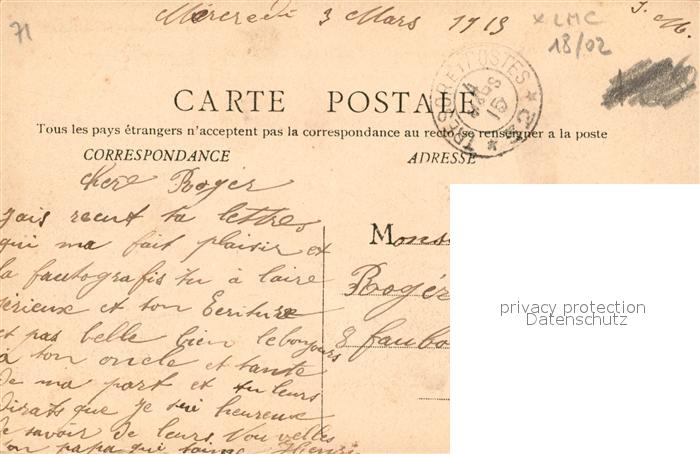 71
Mercredi 3 Mars 1915
x LMC
18/02
J. M.
TRESOR ET POSTES
CARTE POSTALE
Tous les pays étrangers n'acceptent pas la correspondance au recto (se renseigner a la poste
CORRESPONDANCE
ADRESSE
chere Rogér
jais recut ta lettres
qui ma fait plaisir et
la fautografis tu à laire
serieux et ton Ecriture
et pas belle bien lebonjours
à ton oncle et tante
de ma part et tu leurs
dirats que je sui heureux
de savoir de leurs Nouvelles
ton papa qui taime Henri
Mons
Rogér
8 faubo
privacy protection
Datenschutz